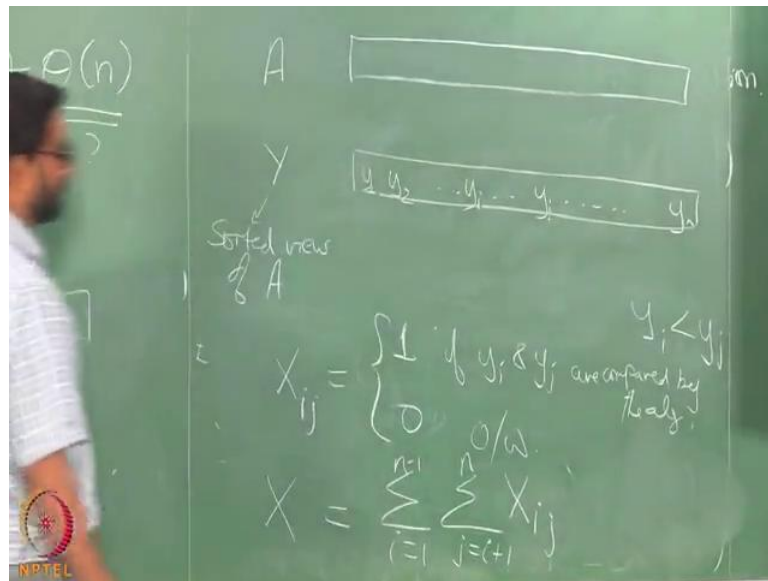 Θ(n)
A
Y
y₁ y₂ ... yᵢ .. yⱼ ...... yₙ
Sorted view
of A
yᵢ < yⱼ
Xᵢⱼ = { 1 if yᵢ & yⱼ are compared by
the alg.
0 O/W.
X = Σ_{i=1}^{n-1} Σ_{j=i+1}^{n} Xᵢⱼ
NPTEL